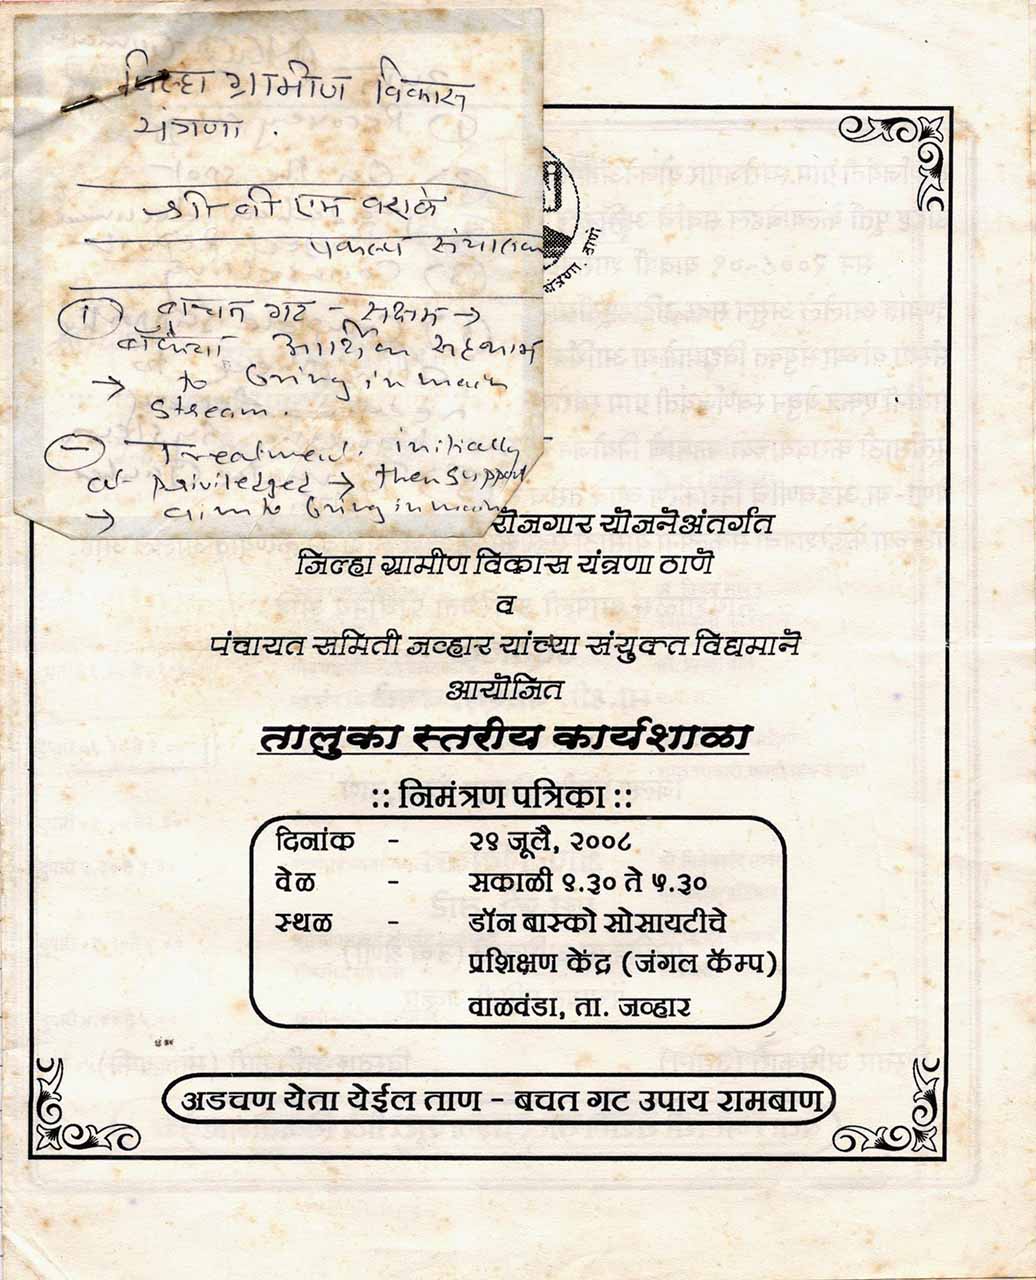 जिल्हा ग्रामीण विकास
यंत्रणा.
श्री व्ही एम वराके
प्रकल्प संचालक
① बचत गट - सक्षम →
आर्थिक सहभाग
→ to bring in main
stream.
Treatment. initially
priviledged → then support
→ aim to bring in main
यंत्रणा. ठाणे
रोजगार योजनेअंतर्गत
जिल्हा ग्रामीण विकास यंत्रणा ठाणे
व
पंचायत समिती जव्हार यांच्या संयुक्त विद्यमाने
आयोजित
तालुका स्तरीय कार्यशाळा
:: निमंत्रण पत्रिका ::
दिनांक - २९ जूलै, २००८
वेळ - सकाळी ९.३० ते ५.३०
स्थळ - डॉन बास्को सोसायटीचे
प्रशिक्षण केंद्र (जंगल कॅम्प)
वाळवंडा, ता. जव्हार
अडचण येता येईल ताण - बचत गट उपाय रामबाण